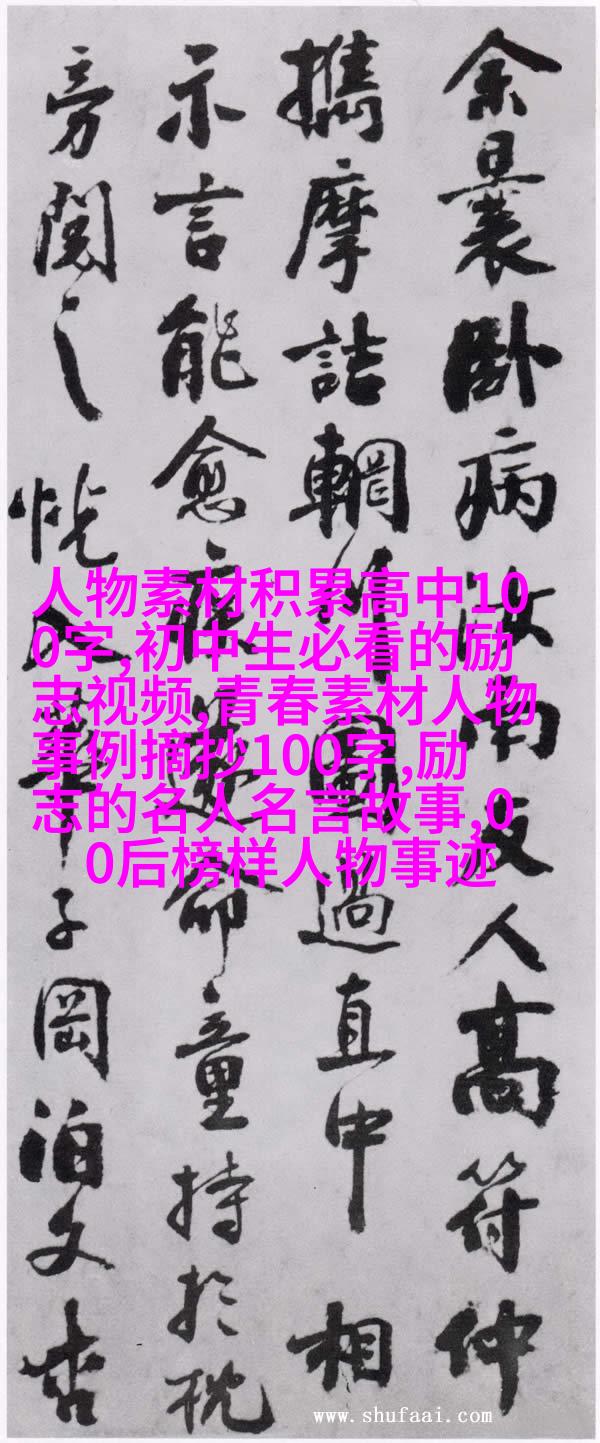 余曩卧病汝南友人高符仲
攜摩詰輞川圖過直中相
示言能愈疾遂命童持於枕
旁閱之恍入華子岡泊文杏
人物素材积累高中10
0字,初中生必看的励
志视频,青春素材人物
事例摘抄100字,励
志的名人名言故事,0
0后榜样人物事迹
www.shufaai.com